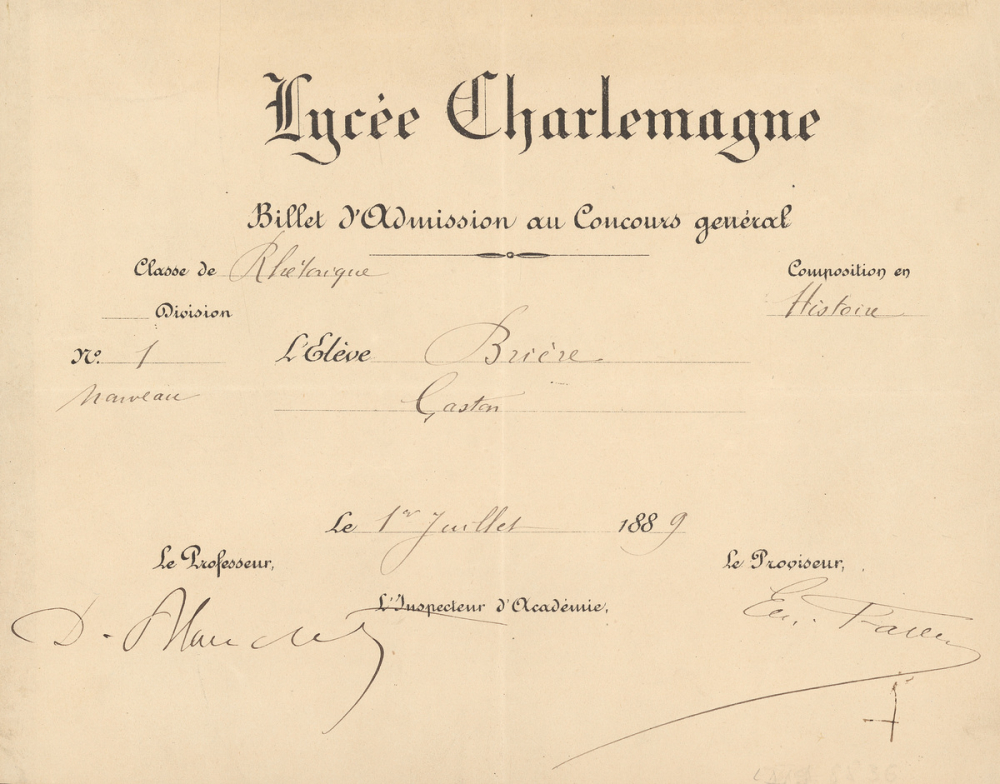 Lycée Charlemagne
Billet d'Admission au Concours général
Classe de Rhétorique
Composition en
Histoire
Division
N° 1
L'Elève Brière
nouveau
Gaston
Le 1er Juillet 1889
Le Professeur,
Le Proviseur,
L'Inspecteur d'Académie,
D. Blanchet